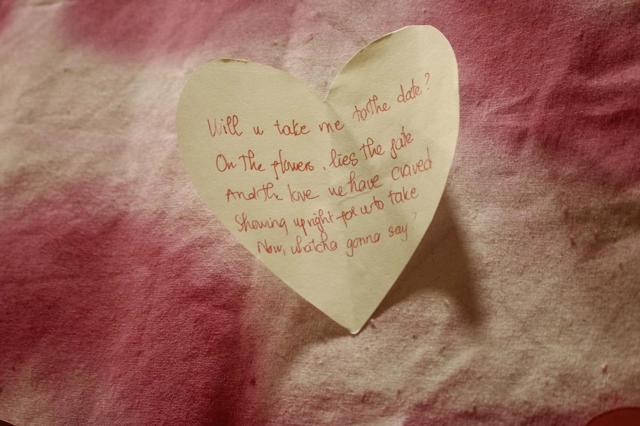 Will u take me to the date?
On the flowers, lies the fate
And the love we have craved
Showing upright for us to take
Now, whatcha gonna say?